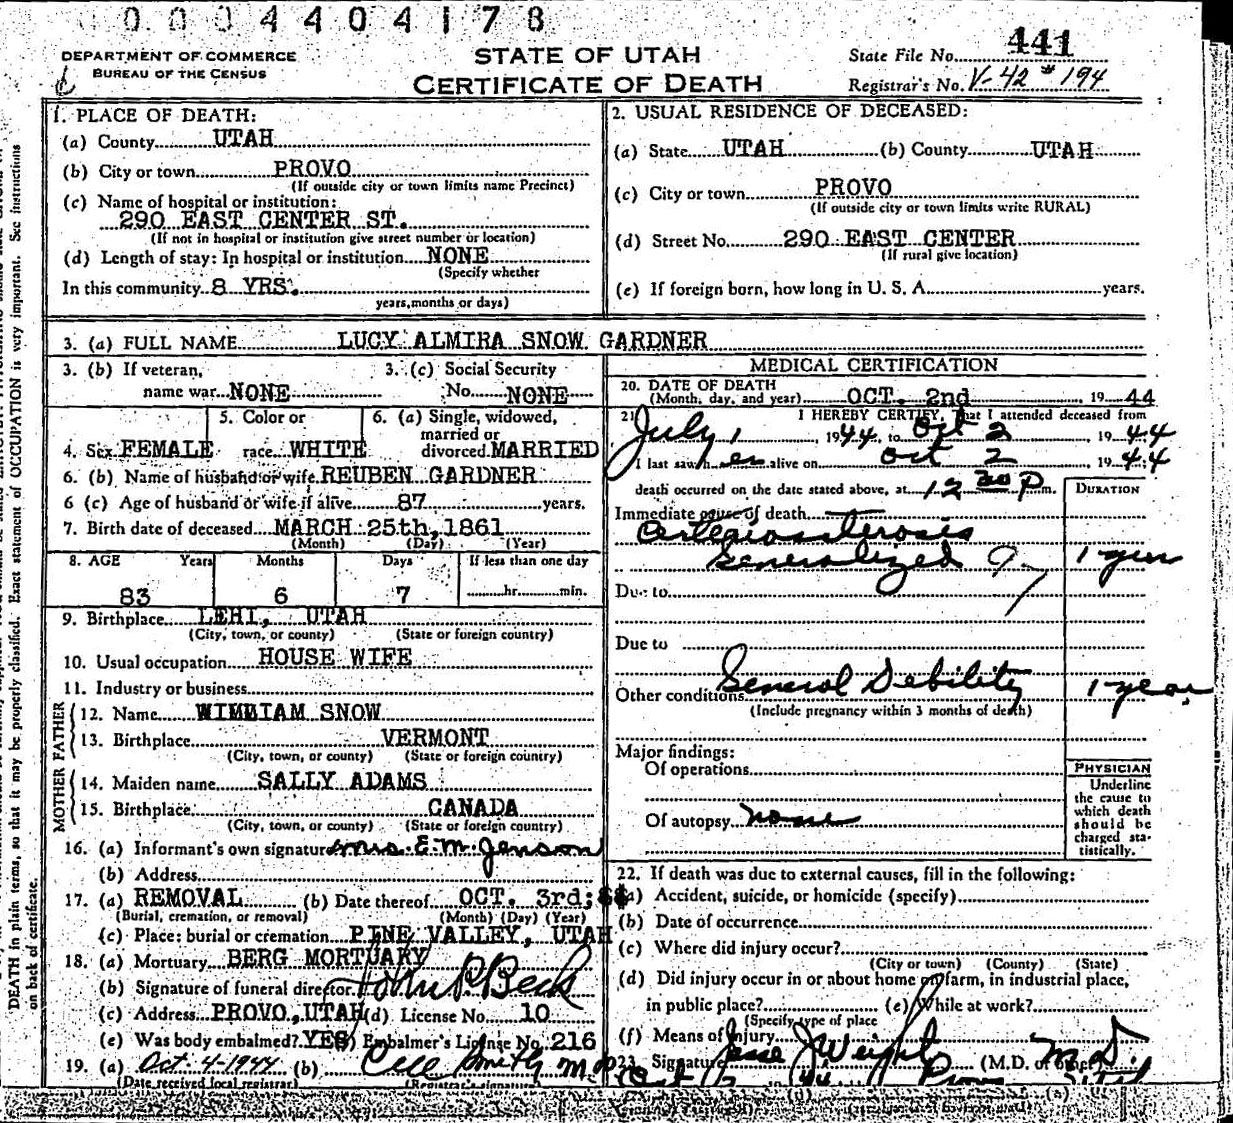 0004404178
DEPARTMENT OF COMMERCE
BUREAU OF THE CENSUS
STATE OF UTAH
CERTIFICATE OF DEATH
State File No. 441
Registrar's No. V-42 # 194
1. PLACE OF DEATH:
(a) County UTAH
(b) City or town PROVO
(If outside city or town limits name Precinct)
(c) Name of hospital or institution:
290 EAST CENTER ST.
(If not in hospital or institution give street number or location)
(d) Length of stay: In hospital or institution NONE
(Specify whether
In this community 8 YRS.
years, months or days)
2. USUAL RESIDENCE OF DECEASED:
(a) State UTAH (b) County UTAH
(c) City or town PROVO
(If outside city or town limits write RURAL)
(d) Street No. 290 EAST CENTER
(If rural give location)
(e) If foreign born, how long in U. S. A. years.
3. (a) FULL NAME LUCY ALMIRA SNOW GARDNER
3. (b) If veteran,
name war NONE
3. (c) Social Security
No. NONE
4. Sex FEMALE
5. Color or
race WHITE
6. (a) Single, widowed,
married or
divorced MARRIED
6. (b) Name of husband or wife REUBEN GARDNER
6 (c) Age of husband or wife if alive 87 years.
7. Birth date of deceased MARCH 25th, 1861
(Month) (Day) (Year)
8. AGE Years Months Days If less than one day
83 6 7 hr. min.
9. Birthplace LEHI, UTAH
(City, town, or county) (State or foreign country)
10. Usual occupation HOUSE WIFE
11. Industry or business
FATHER
12. Name WILLIAM SNOW
13. Birthplace VERMONT
(City, town, or county) (State or foreign country)
MOTHER
14. Maiden name SALLY ADAMS
15. Birthplace CANADA
(City, town, or county) (State or foreign country)
16. (a) Informant's own signature Mrs. E. M. Jenson
(b) Address
17. (a) REMOVAL (b) Date thereof OCT. 3rd,
(Burial, cremation, or removal) (Month) (Day) (Year)
(c) Place: burial or cremation PINE VALLEY, UTAH
18. (a) Mortuary BERG MORTUARY
(b) Signature of funeral director John P Beck
(c) Address PROVO, UTAH (d) License No. 10
(e) Was body embalmed? YES Embalmer's License No. 216
19. (a) Oct. 4-1944 (b) Smith M.D.
(Date received local registrar) (Registrar's signature)
MEDICAL CERTIFICATION
20. DATE OF DEATH
(Month, day, and year) OCT. 2nd 1944
21. I HEREBY CERTIFY, That I attended deceased from
July 1, 1944, to Oct 2 1944
I last saw her alive on Oct 2 1944
death occurred on the date stated above, at 12 P. m.
DURATION
Immediate cause of death
Arteriosclerosis
Generalized 1 year
Due to
Due to
Other conditions General Debility 1 year
(Include pregnancy within 3 months of death)
Major findings:
Of operations
Of autopsy none
PHYSICIAN
Underline
the cause to
which death
should be
charged sta-
tistically.
22. If death was due to external causes, fill in the following:
(a) Accident, suicide, or homicide (specify)
(b) Date of occurrence
(c) Where did injury occur?
(City or town) (County) (State)
(d) Did injury occur in or about home on farm, in industrial place,
in public place? (e) While at work?
(Specify type of place
(f) Means of injury
23. Signature Jesse J Weight (M.D. or other) M.D.
Provo
DEATH in plain terms, so that it may be properly classified. Exact statement of OCCUPATION is very important. See instructions
on back of certificate.